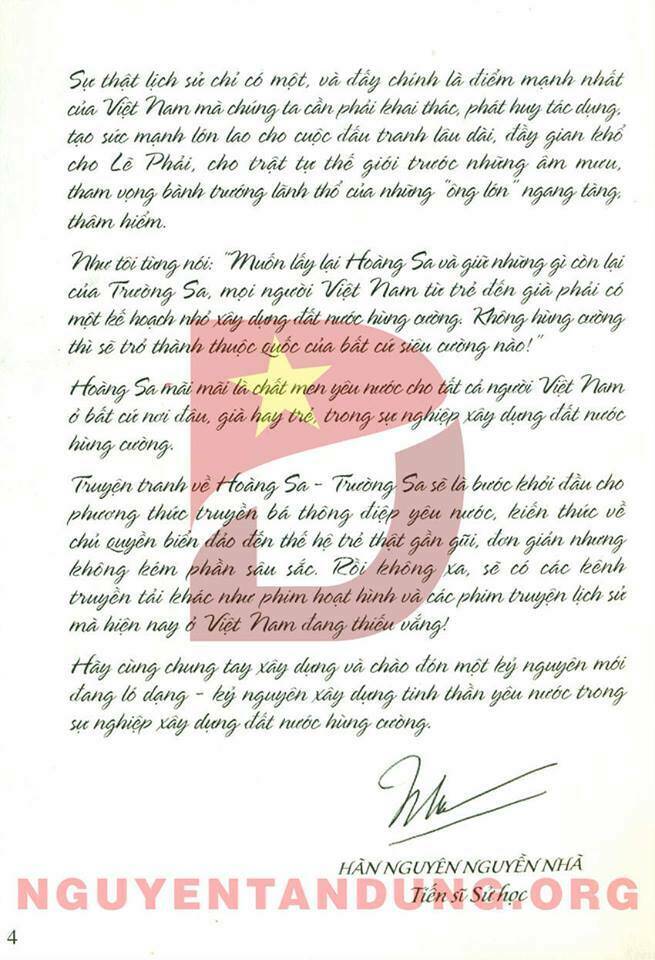 Sự thật lịch sử chỉ có một, và đấy chính là điểm mạnh nhất
của Việt Nam mà chúng ta cần phải khai thác, phát huy tác dụng,
tạo sức mạnh lớn lao cho cuộc đấu tranh lâu dài, đầy gian khổ
cho Lẽ Phải, cho trật tự thế giới trước những âm mưu,
tham vọng bành trướng lãnh thổ của những "ông lớn" ngang tàng,
thâm hiểm.
Như tôi từng nói: "Muốn lấy lại Hoàng Sa và giữ những gì còn lại
của Trường Sa, mọi người Việt Nam từ trẻ đến già phải có
một kế hoạch nhỏ xây dựng đất nước hùng cường. Không hùng cường
thì sẽ trở thành thuộc quốc của bất cứ siêu cường nào!"
Hoàng Sa mãi mãi là chất men yêu nước cho tất cả người Việt Nam
ở bất cứ nơi đâu, già hay trẻ, trong sự nghiệp xây dựng đất nước
hùng cường.
Truyện tranh về Hoàng Sa - Trường Sa sẽ là bước khởi đầu cho
phương thức truyền bá thông điệp yêu nước, kiến thức về
chủ quyền biển đảo đến thế hệ trẻ thật gần gũi, đơn giản nhưng
không kém phần sâu sắc. Rồi không xa, sẽ có các kênh
truyền tải khác như phim hoạt hình và các phim truyện lịch sử
mà hiện nay ở Việt Nam đang thiếu vắng!
Hãy cùng chung tay xây dựng và chào đón một kỷ nguyên mới
đang ló dạng - kỷ nguyên xây dựng tinh thần yêu nước trong
sự nghiệp xây dựng đất nước hùng cường.
HÃN NGUYÊN NGUYỄN NHÃ
NGUYENTANDUNG.ORG
Tiến sĩ Sử học
4